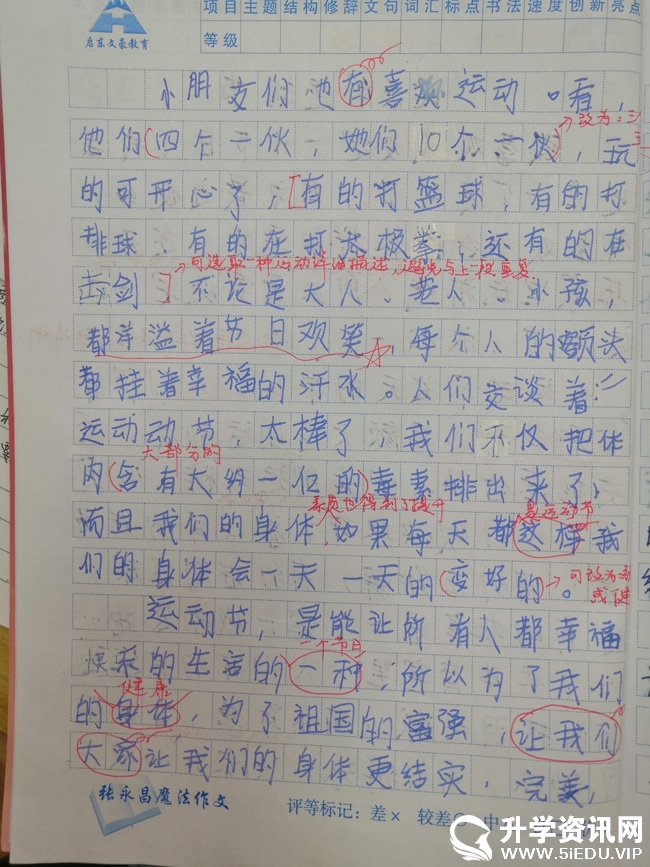 项目 主题 结构 修辞 文句 词汇 标点 书法 速度 创新 亮点
启东文豪教育
等级
小朋友们也有喜欢运动。看,
改为:三
他们(四个一伙,她们10个一伙),玩
的可开心了,[有的打篮球,有的打
排球,有的在打太极拳,还有的在
可选取一种运动详细描述,避免与上一段重复
击剑]不论是大人、老人、小孩,
都洋溢着节日欢笑,每个人的额头
都挂着幸福的汗水。人们交谈着:"
运动动节,太棒了,我们不仅把体
大部分的
内(含有大约一亿的)毒素排出来了,
素质也得到了提升
是运动节
而且我们的身体,如果每天都这样我
们的身体会一天一天的(变好的)。
可改为
或健
运动节,是能让所有人都幸福
一个节日
快乐的生活的一种,所以为了我们
健康
的身体,为了祖国的富强,让我们
大家让我们的身体更结实,完美,
张永昌魔法作文
评等标记:差× 较差 中
升学资讯网
WWW.5iEDU.VIP